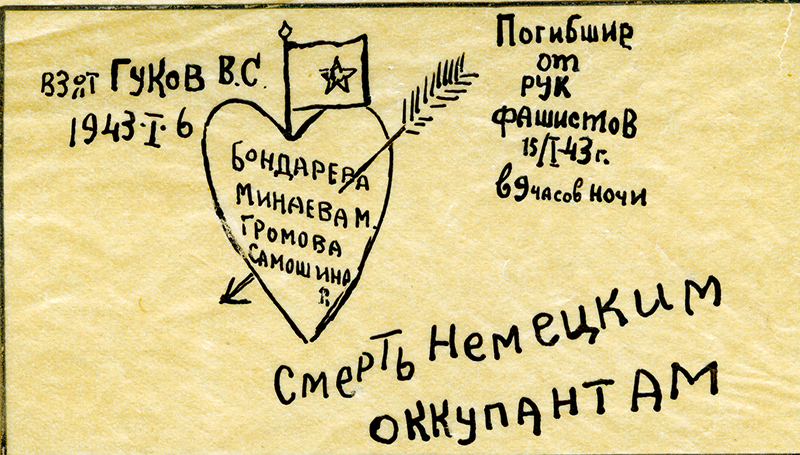 взят Гуков В.С.
1943·I·6
Бондарева
Минаева М.
Громова
Самошина
Погибшие
от
рук
фашистов
15/I-43 г.
в 9 часов ночи
Смерть немецким
оккупантам